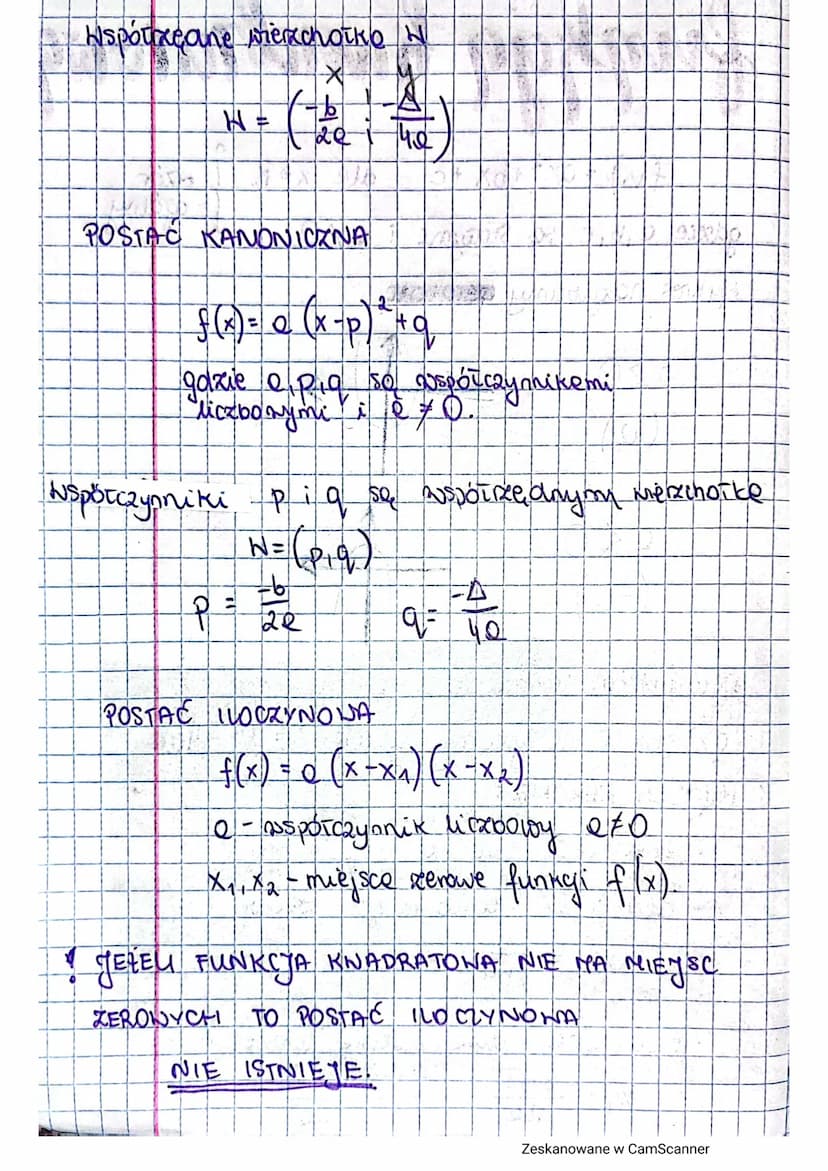 Współrzędne wierzchołka W
x y
W = (-b/2a ; -Δ/4a)
POSTAĆ KANONICZNA
f(x) = a (x-p)² + q
gdzie a, p, q są współczynnikami
liczbowymi i a ≠ 0.
Współczynniki p i q są współrzędnym wierzchołka
W = (p, q)
p = -b/2a q = -Δ/4a
POSTAĆ ILOCZYNOWA
f(x) = a (x-x₁)(x-x₂)
a - współczynnik liczbowy a≠0
x₁, x₂ - miejsca zerowe funkcji f(x).
! JEŻELI FUNKCJA KWADRATOWA NIE MA MIEJSC
ZEROWYCH TO POSTAĆ ILOCZYNOWA
NIE ISTNIEJE.
Zeskanowane w CamScanner